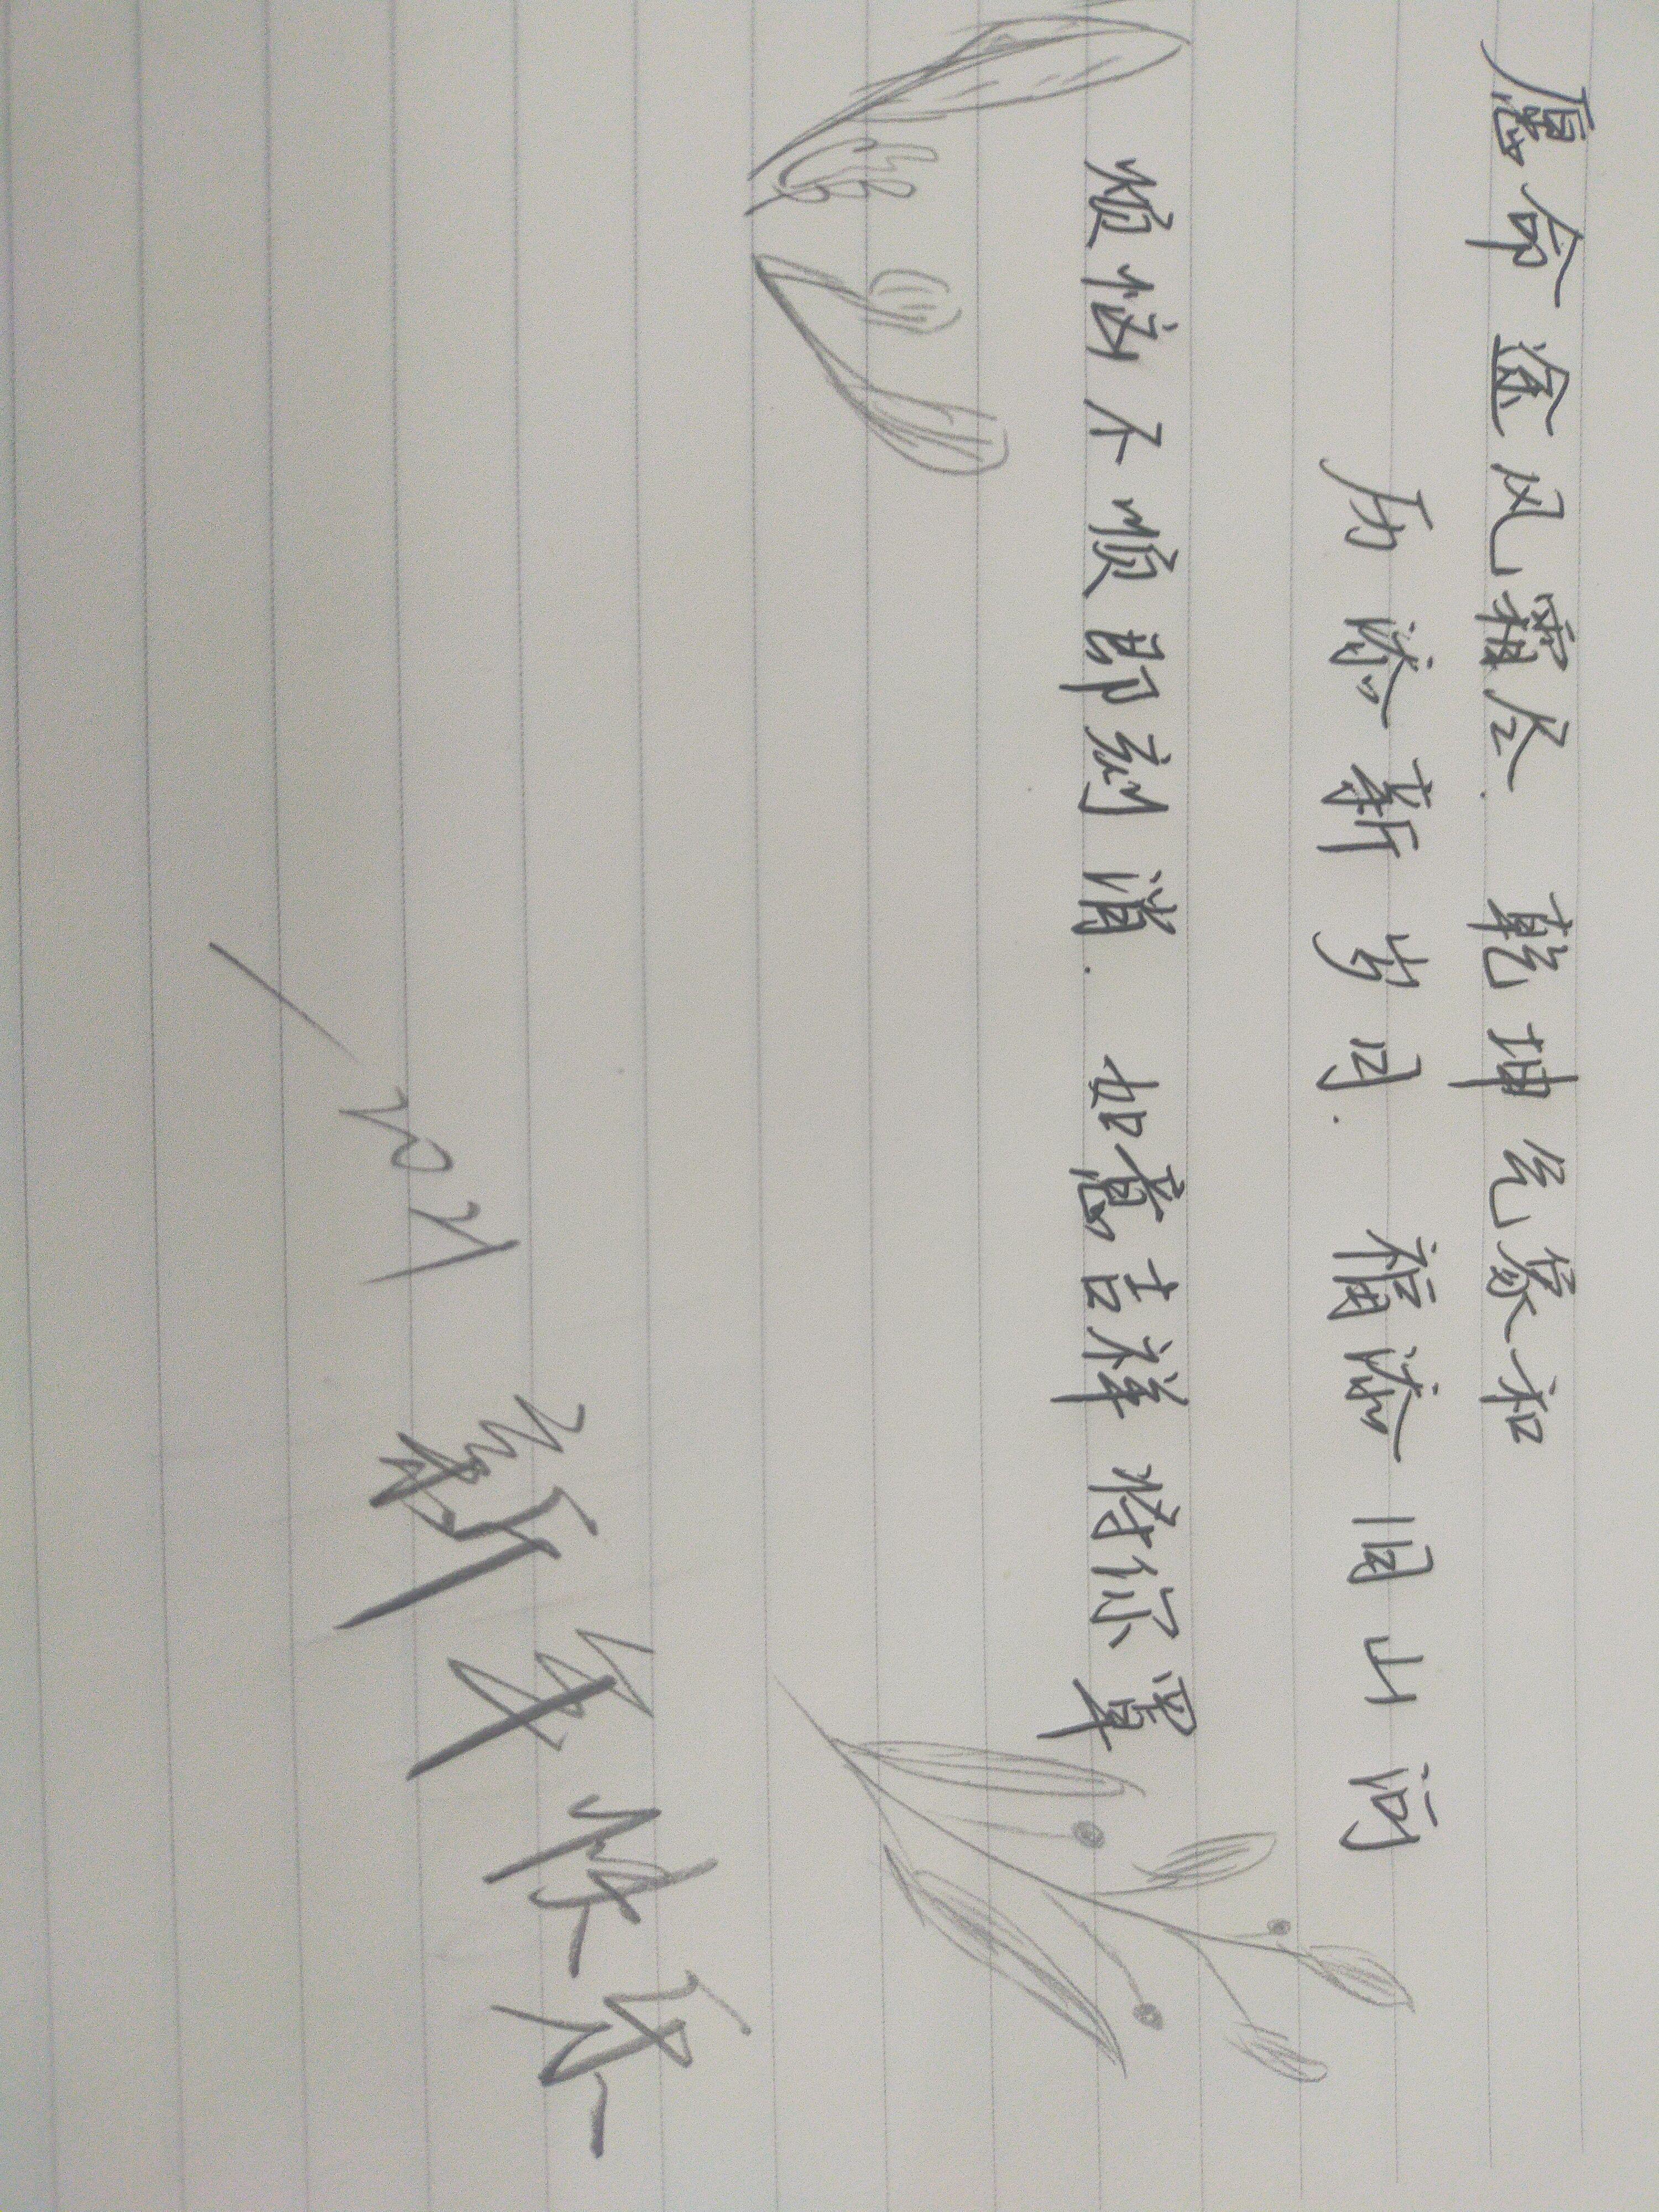 愿命途风霜尽.乾坤气象和
历添新岁月.福添旧山河
烦恼不顺即刻消.如意吉祥将你罩
新年快乐